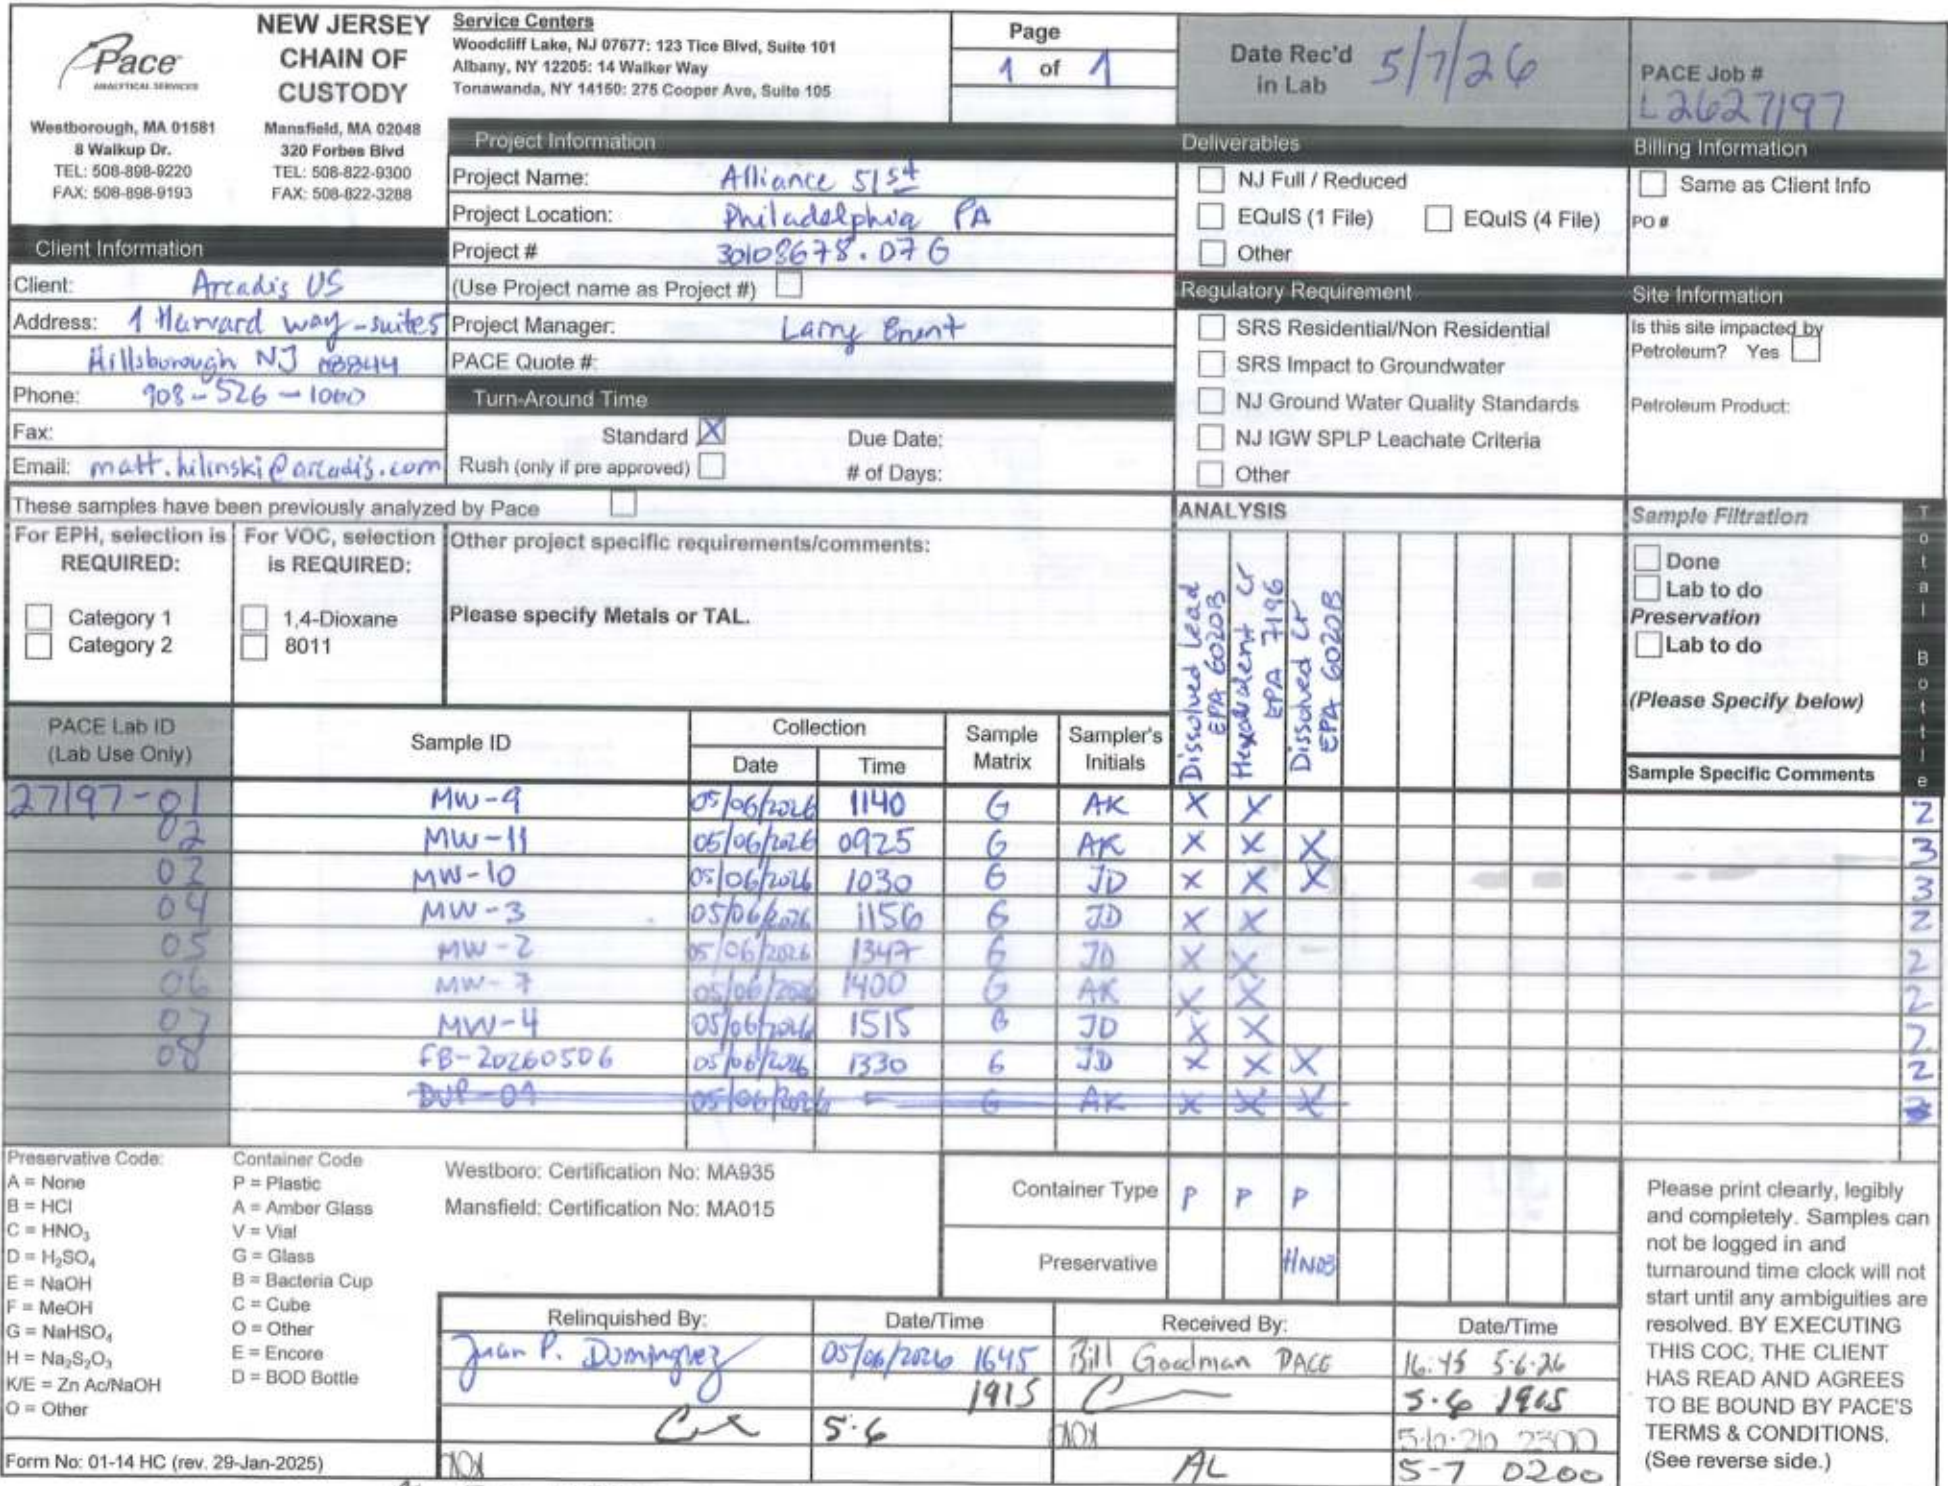 Pace
ANALYTICAL SERVICES
NEW JERSEY
CHAIN OF
CUSTODY
Westborough, MA 01581
8 Walkup Dr.
TEL: 508-898-9220
FAX: 508-898-9193
Mansfield, MA 02048
320 Forbes Blvd
TEL: 508-822-9300
FAX: 508-822-3288
Service Centers
Woodcliff Lake, NJ 07677: 123 Tice Blvd, Suite 101
Albany, NY 12205: 14 Walker Way
Tonawanda, NY 14150: 275 Cooper Ave, Suite 105
Page
1 of 1
Date Rec'd in Lab 5/7/26
PACE Job #
L2627197
Client Information
Client: Arcadis US
Address: 1 Harvard way-suite5
Hillsborough NJ 08844
Phone: 908-526-1000
Fax:
Email: matt.hilinski@arcadis.com
Project Information
Project Name: Alliance 51st
Project Location: Philadelphia PA
Project # 30108678.07G
(Use Project name as Project #)
Project Manager: Larry Brunt
PACE Quote #:
Turn-Around Time
Standard X Due Date:
Rush (only if pre approved) # of Days:
Deliverables
NJ Full / Reduced
EQuIS (1 File) EQuIS (4 File)
Other
Regulatory Requirement
SRS Residential/Non Residential
SRS Impact to Groundwater
NJ Ground Water Quality Standards
NJ IGW SPLP Leachate Criteria
Other
Billing Information
Same as Client Info
PO #
Site Information
Is this site impacted by
Petroleum? Yes
Petroleum Product:
These samples have been previously analyzed by Pace
For EPH, selection is REQUIRED:
Category 1
Category 2
For VOC, selection is REQUIRED:
1,4-Dioxane
8011
Other project specific requirements/comments:
Please specify Metals or TAL.
ANALYSIS
Dissolved Lead EPA 6020B
Hexavalent Cr EPA 7196
Dissolved Cr EPA 6020B
Sample Filtration
Done
Lab to do
Preservation
Lab to do
(Please Specify below)
Total Bottle
PACE Lab ID (Lab Use Only) Sample ID Collection Date Time Sample Matrix Sampler's Initials Sample Specific Comments
27197-01 MW-9 05/06/2026 1140 G AK X X 2
02 MW-11 05/06/2026 0925 G AK X X X 3
03 MW-10 05/06/2026 1030 G JD X X X 3
04 MW-3 05/06/2026 1156 G JD X X 2
05 MW-2 05/06/2026 1347 G JD X X 2
06 MW-7 05/06/2026 1400 G AK X X 2
07 MW-4 05/06/2026 1515 G JD X X 2
08 FB-20260506 05/06/2026 1330 G JD X X X 2
DUP-01 05/06/2026 - G AK X X X
Preservative Code:
A = None
B = HCl
C = HNO₃
D = H₂SO₄
E = NaOH
F = MeOH
G = NaHSO₄
H = Na₂S₂O₃
K/E = Zn Ac/NaOH
O = Other
Container Code
P = Plastic
A = Amber Glass
V = Vial
G = Glass
B = Bacteria Cup
C = Cube
O = Other
E = Encore
D = BOD Bottle
Westboro: Certification No: MA935
Mansfield: Certification No: MA015
Container Type P P P
Preservative HNO3
Relinquished By: Date/Time Received By: Date/Time
Juan P. Dominguez 05/06/2026 1645 Bill Goodman PACE 16:45 5-6-26
1915 5-6 1915
5-6 2300
AL 5-7 0200
Please print clearly, legibly
and completely. Samples can
not be logged in and
turnaround time clock will not
start until any ambiguities are
resolved. BY EXECUTING
THIS COC, THE CLIENT
HAS READ AND AGREES
TO BE BOUND BY PACE'S
TERMS & CONDITIONS.
(See reverse side.)
Form No: 01-14 HC (rev. 29-Jan-2025)